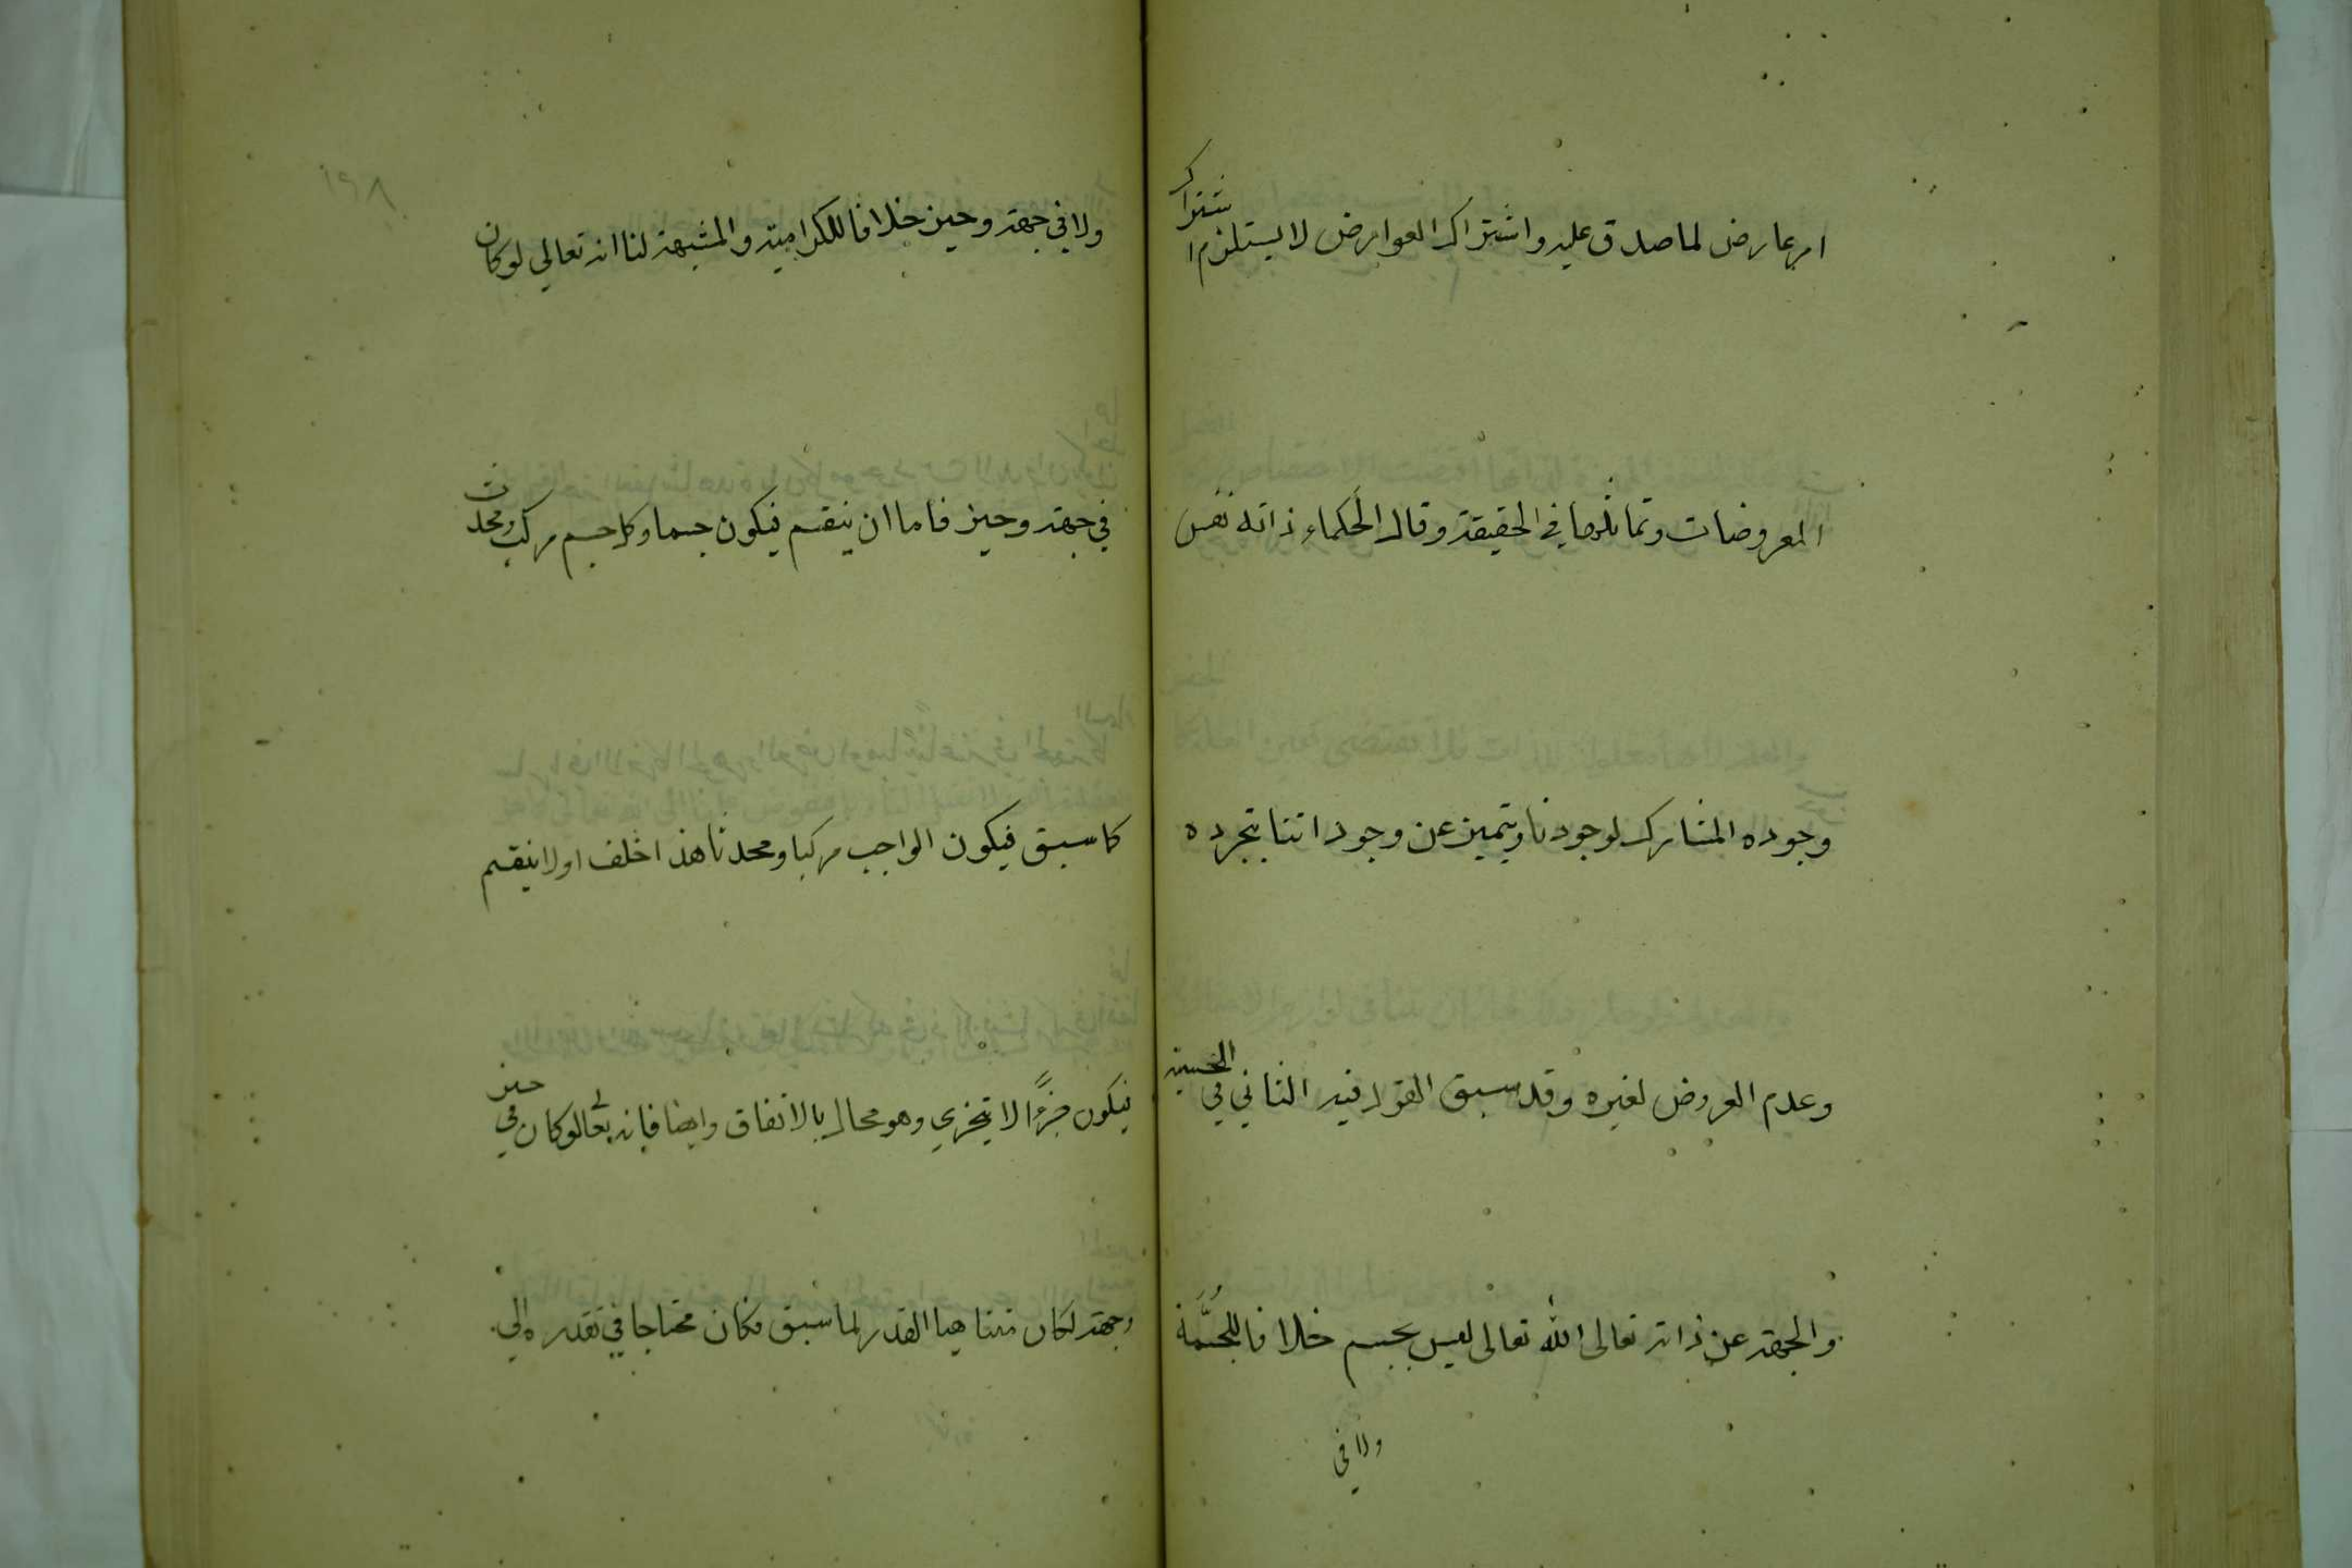 امر عارض لما صدق عليه واشتراك العوارض لا يستلزم اشتراك
المعروضات وتماثلها في الحقيقة وقال الحكماء ذاته نفس
وجوده المشارك لوجودنا ويتميز عن وجوداتنا بتجرده
وعدم العروض لغيره وقد سبق القول فيه الثاني في نفي الجسمية
والجهة عن ذاته تعالى الله تعالى ليس بجسم خلافا للمجسمة
ولا في
١٩٨
ولا في جهة وحيز خلافا للكرامية والمشبهة لنا انه تعالي لو كان
في جهة وحيز فاما ان ينقسم فيكون جسما وكل جسم مركب ومحدث
كما سبق فيكون الواجب مركبا ومحدثا هذا خلف او لا ينقسم
فيكون جزءًا لا يتجزي وهو محال بالاتفاق وايضا فانه تعالى لو كان في حيز
وجهة لكان متناهيا القدر لما سبق فكان محتاجا في تقدره الي